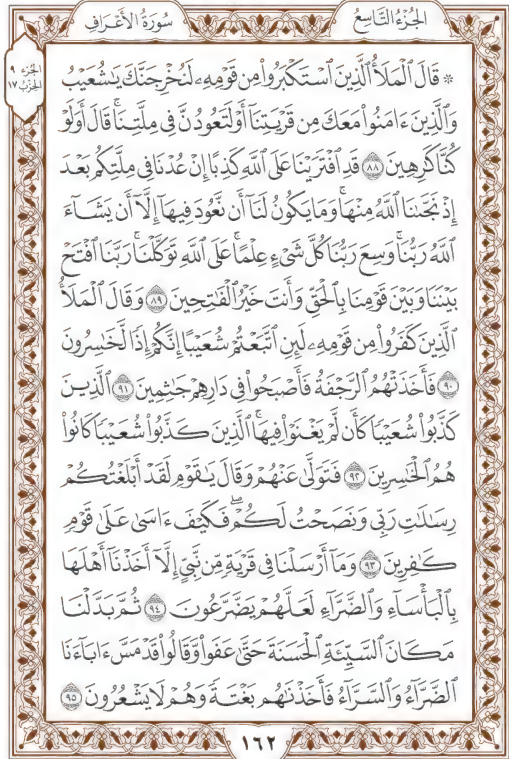 الجُزْءُ التَّاسِعُ
سُورَةُ الأَعْرَافِ
الجُزْء ٩
الحِزْب ١٧
۞ قَالَ ٱلْمَلَأُ ٱلَّذِينَ ٱسْتَكْبَرُوا۟ مِن قَوْمِهِۦ لَنُخْرِجَنَّكَ يَـٰشُعَيْبُ
وَٱلَّذِينَ ءَامَنُوا۟ مَعَكَ مِن قَرْيَتِنَآ أَوْ لَتَعُودُنَّ فِى مِلَّتِنَا ۚ قَالَ أَوَلَوْ
كُنَّا كَـٰرِهِينَ ٨٨ قَدِ ٱفْتَرَيْنَا عَلَى ٱللَّهِ كَذِبًا إِنْ عُدْنَا فِى مِلَّتِكُم بَعْدَ
إِذْ نَجَّىٰنَا ٱللَّهُ مِنْهَا ۚ وَمَا يَكُونُ لَنَآ أَن نَّعُودَ فِيهَآ إِلَّآ أَن يَشَآءَ
ٱللَّهُ رَبُّنَا ۚ وَسِعَ رَبُّنَا كُلَّ شَىْءٍ عِلْمًا ۚ عَلَى ٱللَّهِ تَوَكَّلْنَا ۚ رَبَّنَا ٱفْتَحْ
بَيْنَنَا وَبَيْنَ قَوْمِنَا بِٱلْحَقِّ وَأَنتَ خَيْرُ ٱلْفَـٰتِحِينَ ٨٩ وَقَالَ ٱلْمَلَأُ
ٱلَّذِينَ كَفَرُوا۟ مِن قَوْمِهِۦ لَئِنِ ٱتَّبَعْتُمْ شُعَيْبًا إِنَّكُمْ إِذًا لَّخَـٰسِرُونَ
٩٠ فَأَخَذَتْهُمُ ٱلرَّجْفَةُ فَأَصْبَحُوا۟ فِى دَارِهِمْ جَـٰثِمِينَ ٩١ ٱلَّذِينَ
كَذَّبُوا۟ شُعَيْبًا كَأَن لَّمْ يَغْنَوْا۟ فِيهَا ۚ ٱلَّذِينَ كَذَّبُوا۟ شُعَيْبًا كَانُوا۟
هُمُ ٱلْخَـٰسِرِينَ ٩٢ فَتَوَلَّىٰ عَنْهُمْ وَقَالَ يَـٰقَوْمِ لَقَدْ أَبْلَغْتُكُمْ
رِسَـٰلَـٰتِ رَبِّى وَنَصَحْتُ لَكُمْ ۖ فَكَيْفَ ءَاسَىٰ عَلَىٰ قَوْمٍ
كَـٰفِرِينَ ٩٣ وَمَآ أَرْسَلْنَا فِى قَرْيَةٍ مِّن نَّبِىٍّ إِلَّآ أَخَذْنَآ أَهْلَهَا
بِٱلْبَأْسَآءِ وَٱلضَّرَّآءِ لَعَلَّهُمْ يَضَّرَّعُونَ ٩٤ ثُمَّ بَدَّلْنَا
مَكَانَ ٱلسَّيِّئَةِ ٱلْحَسَنَةَ حَتَّىٰ عَفَوا۟ وَّقَالُوا۟ قَدْ مَسَّ ءَابَآءَنَا
ٱلضَّرَّآءُ وَٱلسَّرَّآءُ فَأَخَذْنَـٰهُم بَغْتَةً وَهُمْ لَا يَشْعُرُونَ ٩٥
١٦٢